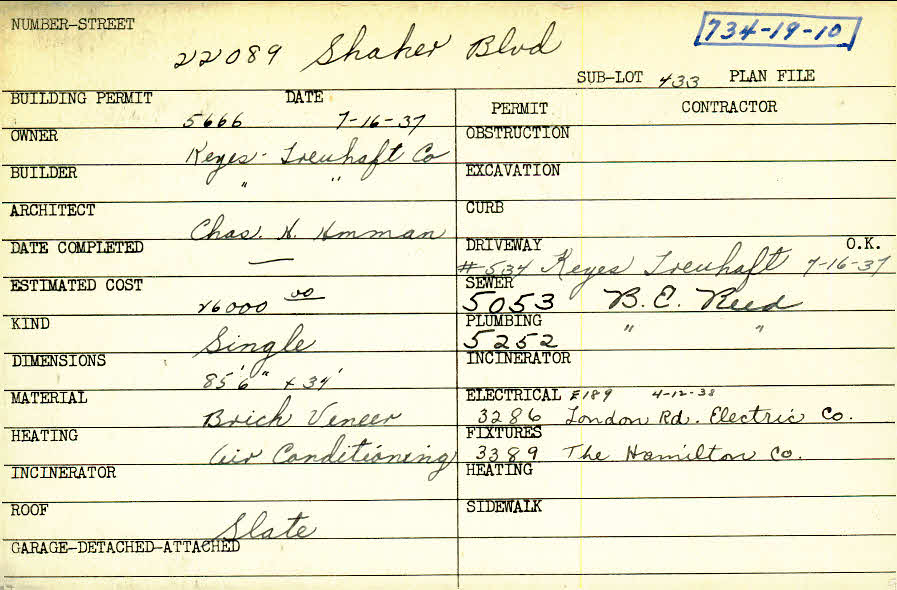 NUMBER-STREET
22089 Shaker Blvd
734-19-10
SUB-LOT 433 PLAN FILE
BUILDING PERMIT DATE
5666 7-16-37
PERMIT CONTRACTOR
OWNER
Keyes-Treuhaft Co
OBSTRUCTION
BUILDER
" "
EXCAVATION
ARCHITECT
Chas. H.
CURB
DATE COMPLETED
—
DRIVEWAY O.K.
#534 Keyes Treuhaft 7-16-37
ESTIMATED COST
26000 00
SEWER
5053 B. E. Reed
KIND
Single
PLUMBING
5252 " "
DIMENSIONS
85'6" x 34'
INCINERATOR
MATERIAL
Brick Veneer
ELECTRICAL E189 4-12-38
3286 London Rd. Electric Co.
HEATING
Air Conditioning
FIXTURES
3389 The Hamilton Co.
INCINERATOR
HEATING
ROOF
Slate
SIDEWALK
GARAGE-DETACHED-ATTACHED